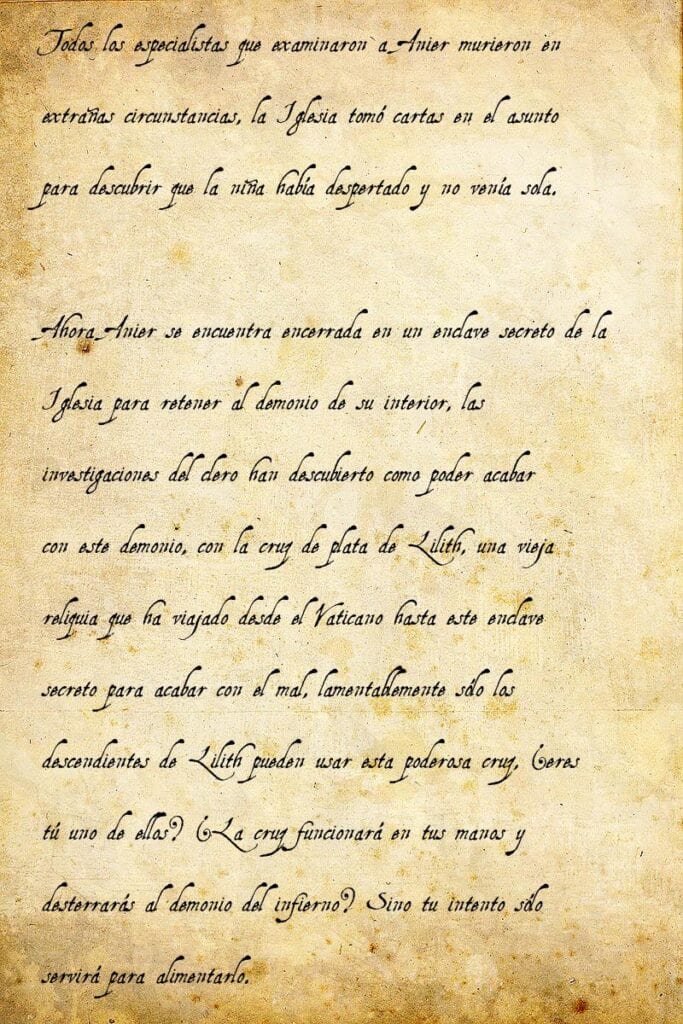 Todos los especialistas que examinaron a Anier murieron en
extrañas circunstancias, la Iglesia tomó cartas en el asunto
para descubrir que la niña había despertado y no venía sola.
Ahora Anier se encuentra encerrada en un enclave secreto de la
Iglesia para retener al demonio de su interior, las
investigaciones del clero han descubierto como poder acabar
con este demonio, con la cruz de plata de Lilith, una vieja
reliquia que ha viajado desde el Vaticano hasta este enclave
secreto para acabar con el mal, lamentablemente sólo los
descendientes de Lilith pueden usar esta poderosa cruz, ¿eres
tú uno de ellos? ¿La cruz funcionará en tus manos y
desterrarás al demonio del infierno? Sino tu intento sólo
servirá para alimentarlo.